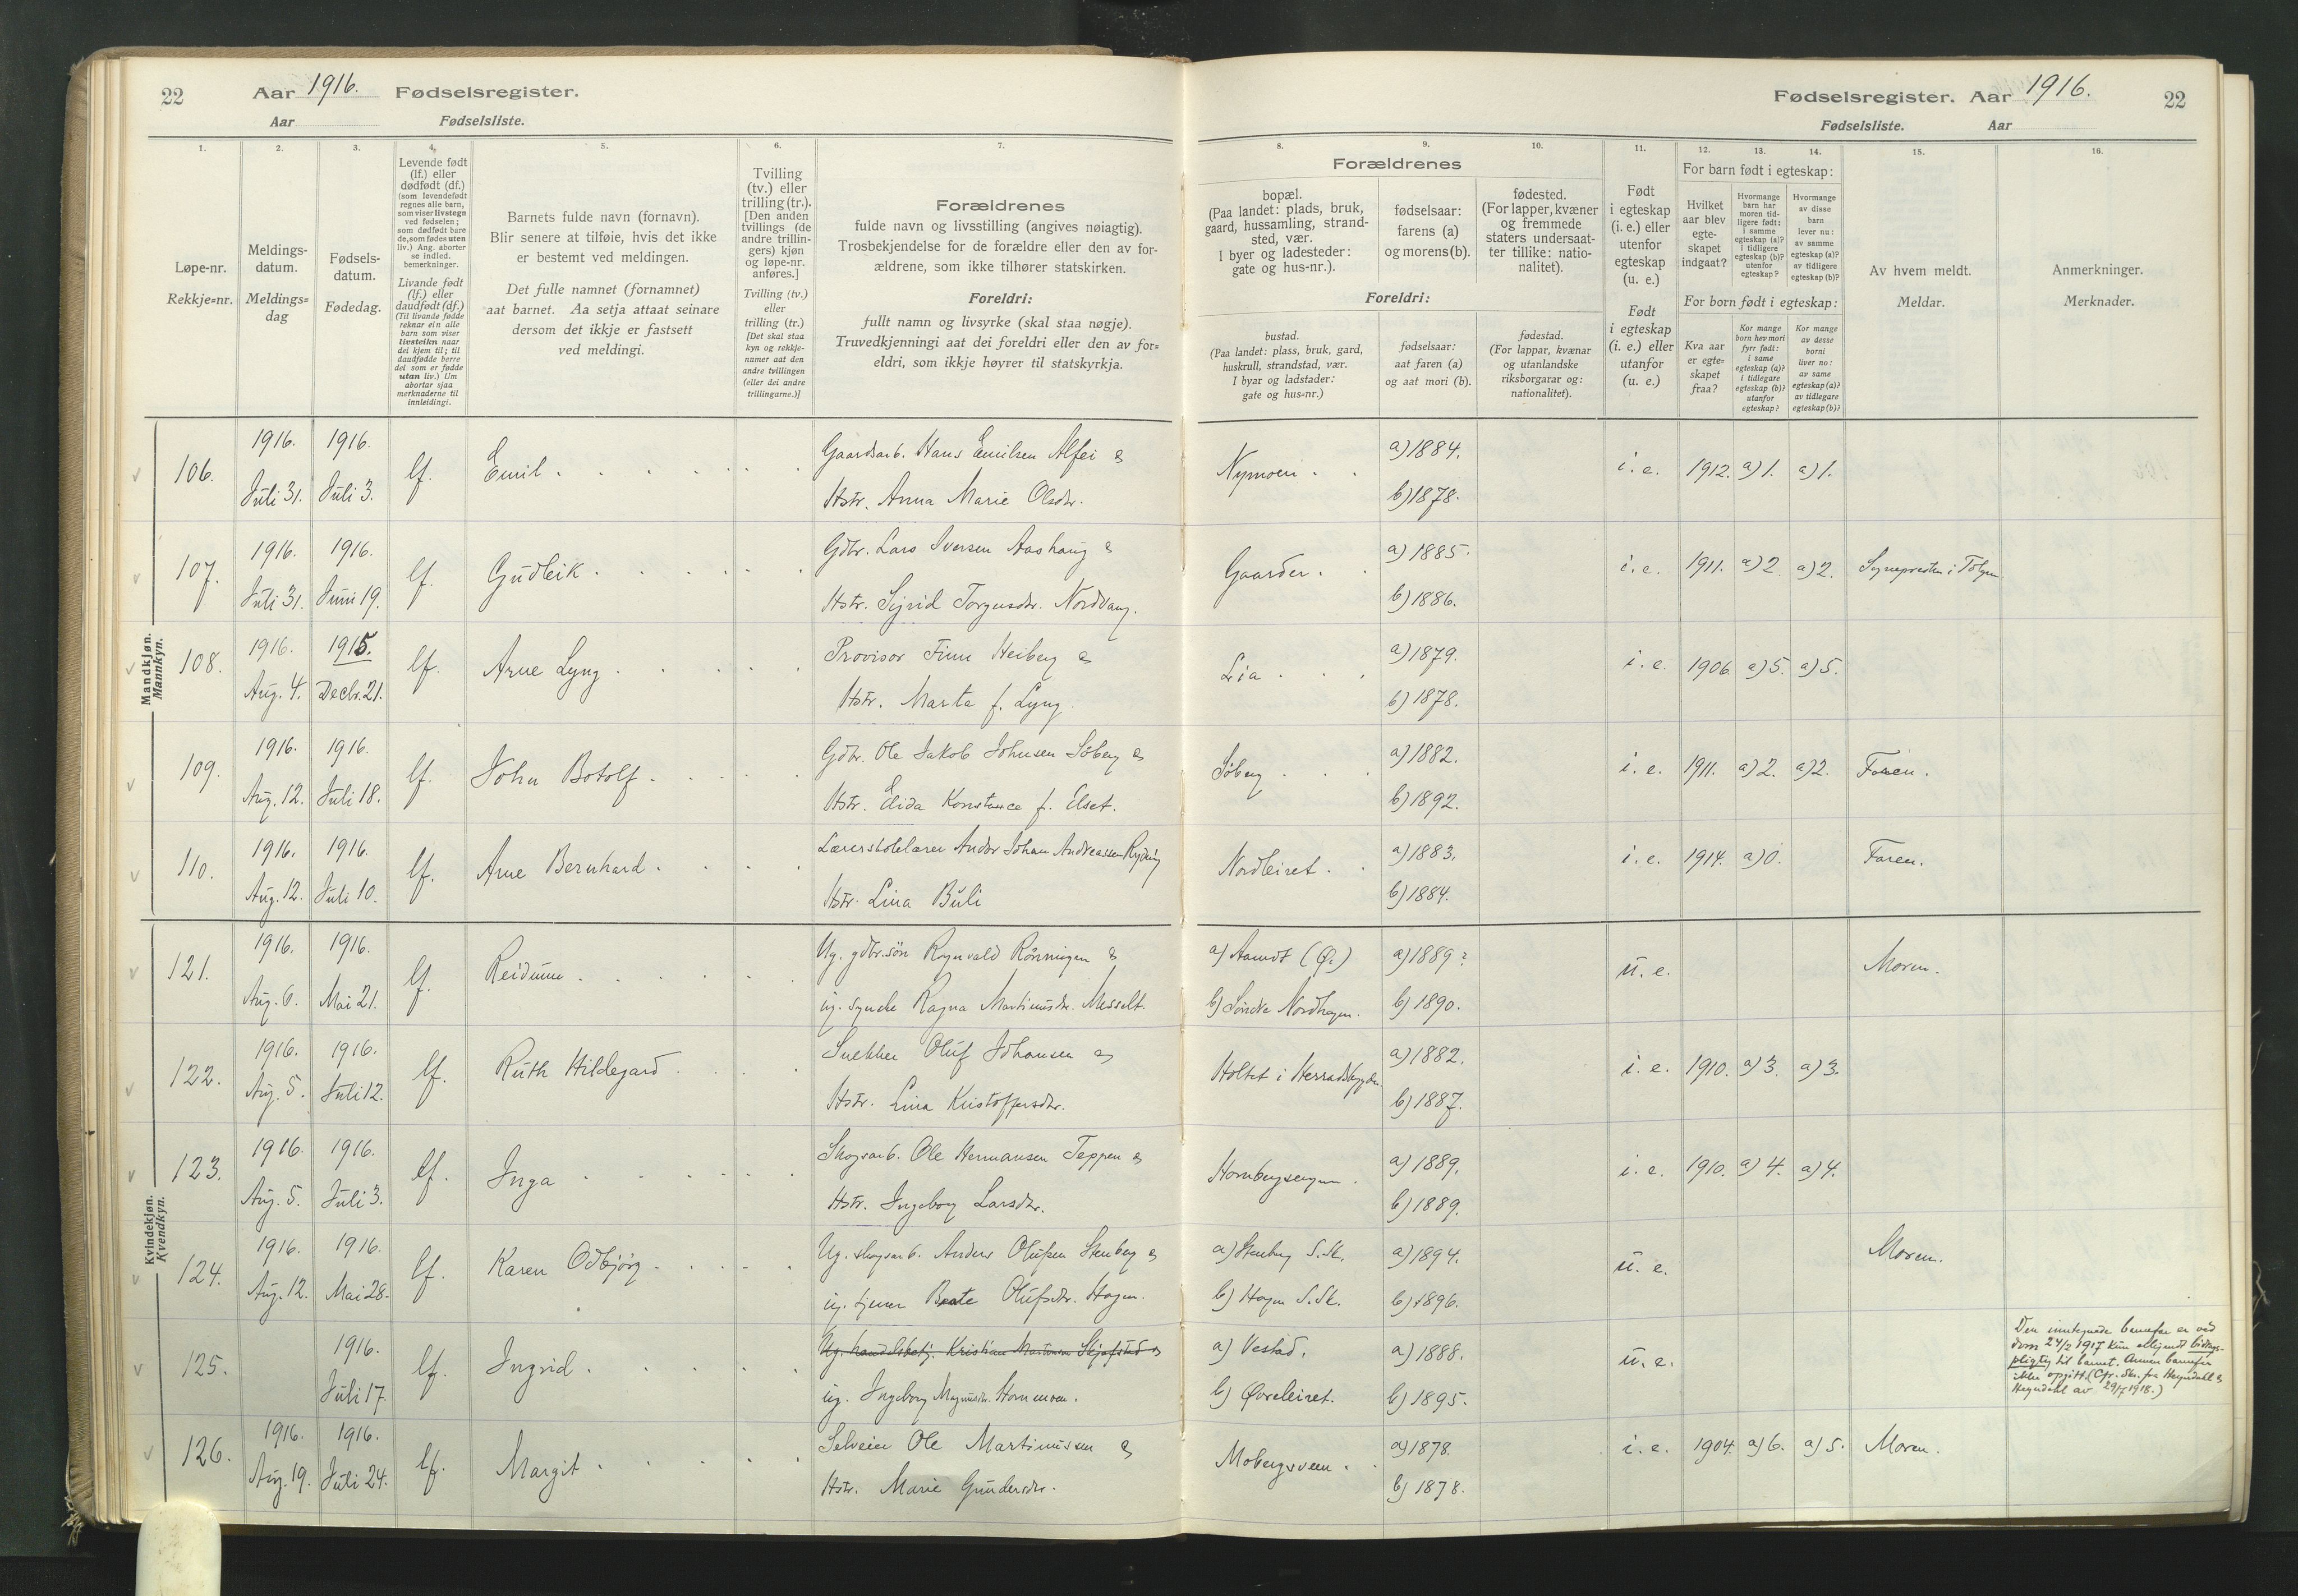 22 Aar 1916. Fødselsregister.
Aar Fødselsliste.
1. 2. 3. 4. 5. 6. 7.
Løpe-nr.
Rekkje=nr.
Meldings-
datum.
Meldings=
dag
Fødsels-
datum.
Fødedag.
Levende født
(lf.) eller
dødfødt (df.)
(som levendefødt
regnes alle barn,
som viser livstegn
ved fødselen;
som dødfødt bare
de, som fødes uten
liv.) Ang. aborter
se indled.
bemerkninger.
Livande født
(lf.) eller
daudfødt (df.)
(Til livande fødde
reknar ein alle
barn som viser
livsteikn naar
dei kjem til; til
daudfødde berre
dei som er fødde
utan liv.) Um
abortar sjaa
merknaderne til
innleidingi.
Barnets fulde navn (fornavn).
Blir senere at tilføie, hvis det ikke
er bestemt ved meldingen.
Det fulle namnet (fornamnet)
aat barnet. Aa setja attaat seinare
dersom det ikkje er fastsett
ved meldingi.
Tvilling
(tv.) eller
trilling (tr.).
[Den anden
tvillings (de
andre trillin-
gers) kjøn
og løpe-nr.
anføres.]
Tvilling (tv.)
eller
trilling (tr.)
[Det skal staa
kyn og rekkje-
numer aat den
andre tvillingen
(eller dei andre
trillingarne.)]
Forældrenes
fulde navn og livsstilling (angives nøiagtig).
Trosbekjendelse for de forældre eller den av for-
ældrene, som ikke tilhører statskirken.
Foreldri:
fullt namn og livsyrke (skal staa nøgje).
Truvedkjenningi aat dei foreldri eller den av for=
eldri, som ikkje høyrer til statskyrkja.
Fødselsregister. Aar 1916. 22
Fødselsliste. Aar
8. 9. 10. 11. 12. 13. 14. 15. 16.
Forældrenes
bopæl.
(Paa landet: plads, bruk,
gaard, hussamling, strand-
sted, vær.
I byer og ladesteder:
gate og hus-nr.).
fødselsaar:
farens (a)
og morens (b).
fødested.
(For lapper, kvæner
og fremmede
staters undersaat-
ter tillike: natio-
nalitet).
Foreldri:
bustad.
(Paa landet: plass, bruk, gard,
huskrull, strandstad, vær.
I byar og ladstader:
gate og hus=nr.)
fødselsaar:
aat faren (a)
og aat mori (b).
fødestad.
(For lappar, kvænar
og utanlandske
riksborgarar og:
nationalitet).
Født
i egteskap
(i. e.) eller
utenfor
egteskap
(u. e.)
Født
i egteskap
(i. e.) eller
utanfor
(u. e.)
For barn født i egteskap:
Hvilket
aar blev
egte-
skapet
indgaat?
Hvormange
barn har
moren tid-
ligere født:
i samme
egteskap (a)?
i tidligere
egteskap (b)?
utenfor
egteskap?
Hvormange
av disse
barn
lever nu:
av samme
egteskap (a)?
av tidligere
egteskap (b)?
For born født i egteskap:
Kva aar
er egte=
skapet
fraa?
Kor mange
born hev mori
fyrr født:
i same
egteskap (a)?
i tidlegare
egteskap (b)?
utanfor
egteskap?
Kor mange
av desse
borni
liver no:
av same
egteskap (a)?
av tidlegare
egteskap (b)?
Av hvem meldt.
Meldar.
Anmerkninger.
Merknader.
Mandkjøn.
Mannkyn.
106. 1916. Juli 31. 1916. Juli 3. lf. Emil
Gaardsarb. Hans Emilsen Alfei &
Hstr. Anna Marie Olsdtr.
Nymoen a) 1884. b) 1878. i. e. 1912. a) 1. a) 1.
107. 1916. Juli 31. 1916. Juni 19. lf. Gudleik
Gdbr. Lars Iversen Aashaug &
Hstr. Sigrid Torgusdtr. Nordvang.
Gaarder a) 1885. b) 1886. i. e. 1911. a) 2. a) 2. Sognepresten i Tolgen
108. 1916. Aug. 4. 1915. Decbr. 21. lf. Arne Lyng
Provisor Finn Heiberg &
Hstr. Marta f. Lyng.
Lia a) 1879. b) 1878. i. e. 1906. a) 5. a) 5.
109. 1916. Aug. 12. 1916. Juli 18. lf. John Botolf
Gdbr. Ole Jakob Johnsen Søberg &
Hstr. Elida Konstance f. Elset.
Søberg a) 1882. b) 1892. i. e. 1911. a) 2. a) 2. Faren.
110. 1916. Aug. 12. 1916. Juli 10. lf. Arne Bernhard
Lærerskolelærer Andor Johan Andreassen Ryding
Hstr. Lina Buli
Nordleiret a) 1883. b) 1884. i. e. 1914. a) 0. Faren.
Kvindekjøn.
Kvendkyn.
121. 1916. Aug. 6. 1916. Mai 21. lf. Reidunn
Ug. gdbr.søn Rognvald Rønningen &
ug. syerske Ragna Martinusdtr. Messelt.
a) Aamot (Ø.) b) Søndre Nordhagen. a) 1889? b) 1890. u. e. Moren.
122. 1916. Aug. 5. 1916. Juli 12. lf. Ruth Hildegard
Snekker Oluf Johansen &
Hstr. Lina Kristoffersdtr.
Holtet i Herradsbygden a) 1882. b) 1887. i. e. 1910. a) 3. a) 3.
123. 1916. Aug. 5. 1916. Juli 3. lf. Inga
Skogsarb. Ole Hermansen Teppen &
Hstr. Ingeborg Larsdtr.
Hornbergsengen a) 1889. b) 1889. i. e. 1910. a) 4. a) 4.
124. 1916. Aug. 12. 1916. Mai 28. lf. Karen Odbjørg
Ug. skogsarb. Anders Olufsen Stenberg &
ug. tjener Beate Olufsdtr. Hagen.
a) Stenberg S. Sk. b) Hagen S. Sk. a) 1894. b) 1896. u. e. Moren.
125. 1916. Juli 17. lf. Ingrid
Ug. handelsbetj. Kristian Martinsen Skjefstad &
ug. Ingeborg Magnusdtr. Hornmoen.
a) Vestad. b) Øvreleiret. a) 1888. b) 1895. u. e.
Den inntegnede barnefar er ved
dom 24/2 1917 kun erkjendt bidrags-
pligtig til barnet. Annen barnefar
ikke opgitt. (Cfr. skr. fra Heyerdahl &
Heyerdahl av 29/7 1918.)
126. 1916. Aug. 19. 1916. Juli 24. lf. Margit
Selveier Ole Martinussen &
Hstr. Marie Gundersdtr.
Mobergsveen a) 1878. b) 1878. i. e. 1904. a) 6. a) 5. Moren.